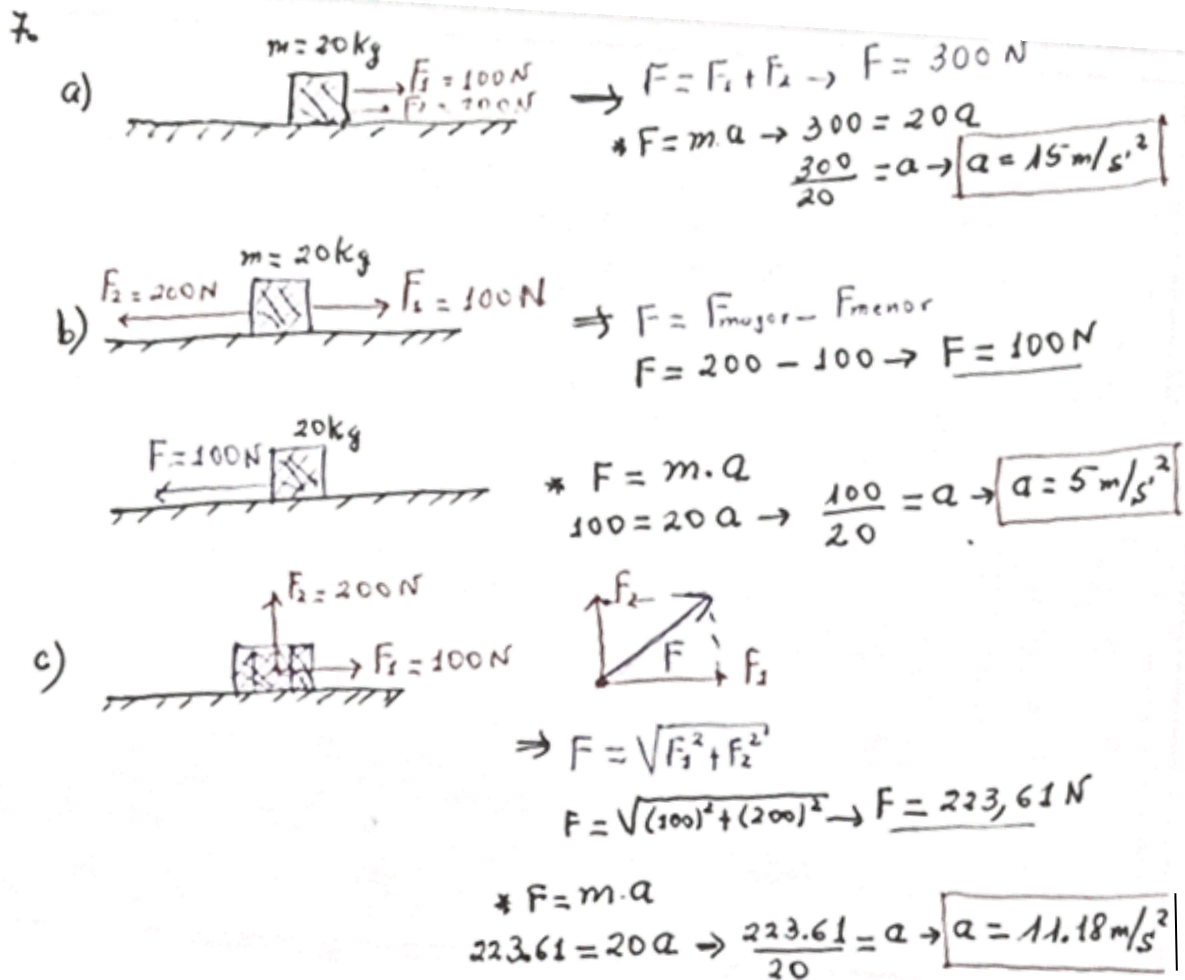 7.
a)
m = 20kg
F₁ = 100N
F₂ = 200N
⇒ F = F₁ + F₂ → F = 300 N
* F = m.a → 300 = 20a
300/20 = a → a = 15 m/s²
b)
m = 20kg
F₂ = 200N
F₁ = 100N
⇒ F = Fmayor - Fmenor
F = 200 - 100 → F = 100N
20kg
F = 100N
* F = m.a
100 = 20a → 100/20 = a → a = 5 m/s²
c)
F₂ = 200N
F₁ = 100N
F₂
F
F₁
⇒ F = √F₁² + F₂²
F = √(100)² + (200)² → F = 223,61N
* F = m.a
223.61 = 20a → 223.61/20 = a → a = 11.18 m/s²